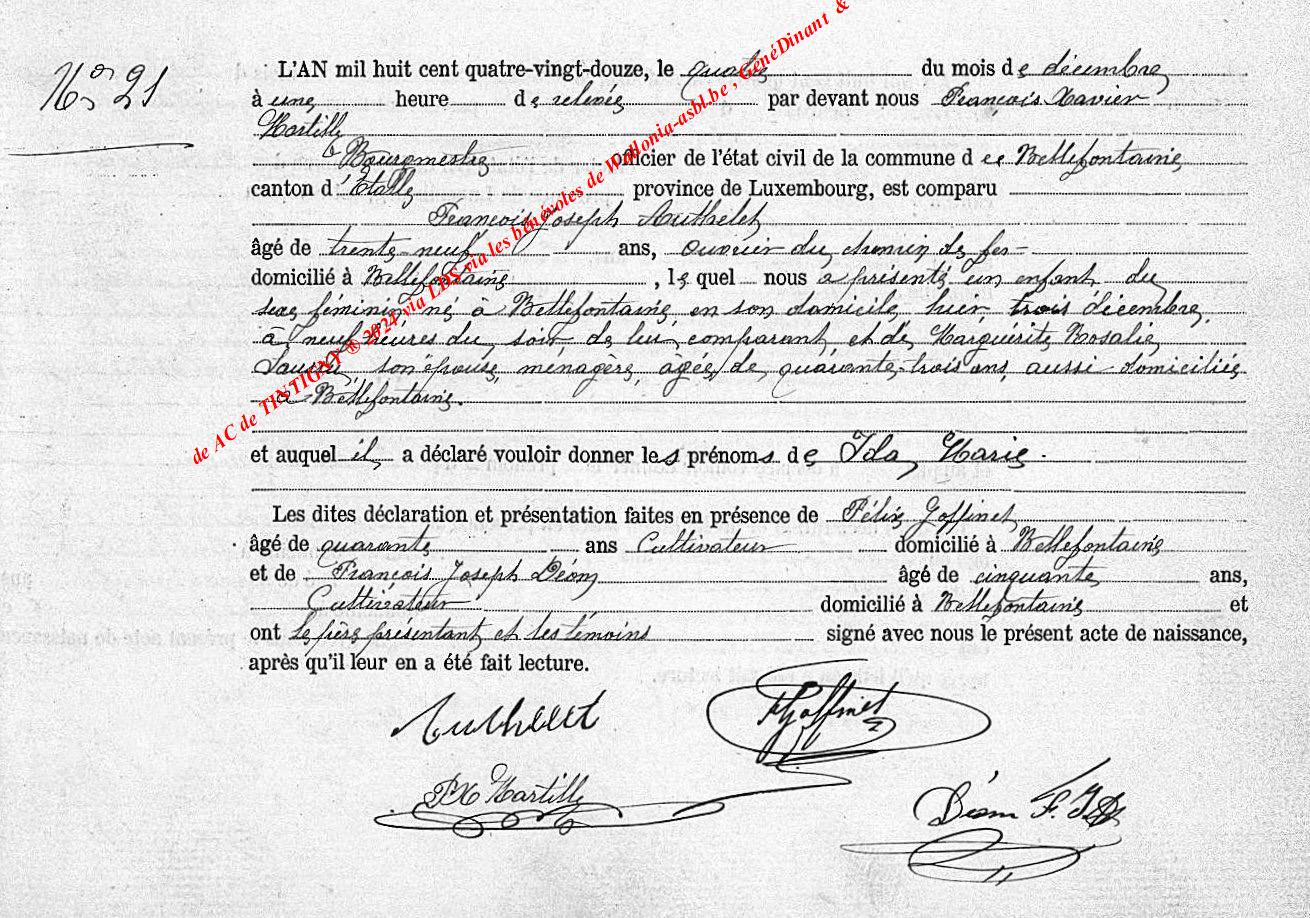 No 21
L'AN mil huit cent quatre-vingt-douze, le quatre du mois de décembre
à une heure de relevée par devant nous François Xavier
Martilly
Bourgmestre officier de l'état civil de la commune de Bellefontaine
canton d'Etalle province de Luxembourg, est comparu
François Joseph Authelet
âgé de trente-neuf ans, ouvrier du chemin de fer
domicilié à Bellefontaine, le quel nous a présenté un enfant du
sexe féminin né à Bellefontaine, en son domicile, hier, trois décembre,
à neuf heures du soir, de lui, comparant, et de Marguérite Rosalie
son épouse, ménagère, âgée de quarante-trois ans, aussi domiciliée
à Bellefontaine.
et auquel il a déclaré vouloir donner les prénoms de Ida Marie.
Les dites déclaration et présentation faites en présence de Félix Goffinet
âgé de quarante ans Cultivateur domicilié à Bellefontaine
et de François Joseph Déom âgé de cinquante ans,
Cultivateur domicilié à Bellefontaine et
ont le père présentant et les témoins signé avec nous le présent acte de naissance,
après qu'il leur en a été fait lecture.
Authelet
F Goffinet
FX Martilly
Déom F. J
de AC de TINTIGNY ® 2024 via LDS via les bénévoles de Wallonia-asbl.be , GénéDinant &